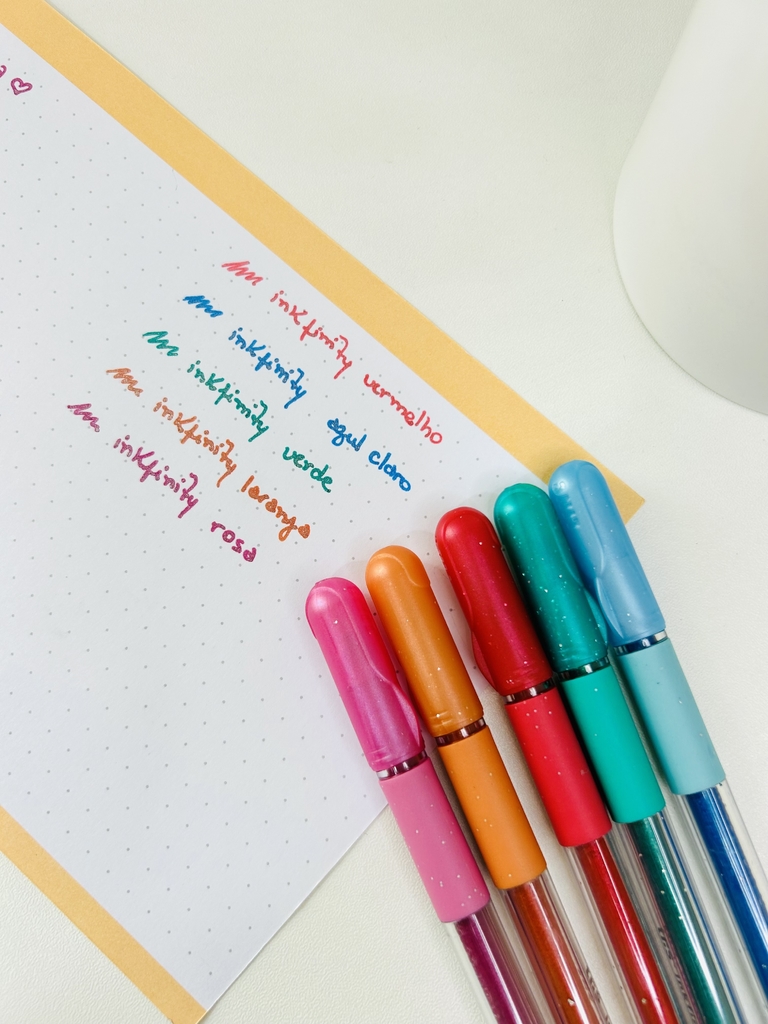 inkfinity vermelho
inkfinity azul claro
inkfinity verde
inkfinity laranja
inkfinity rosa